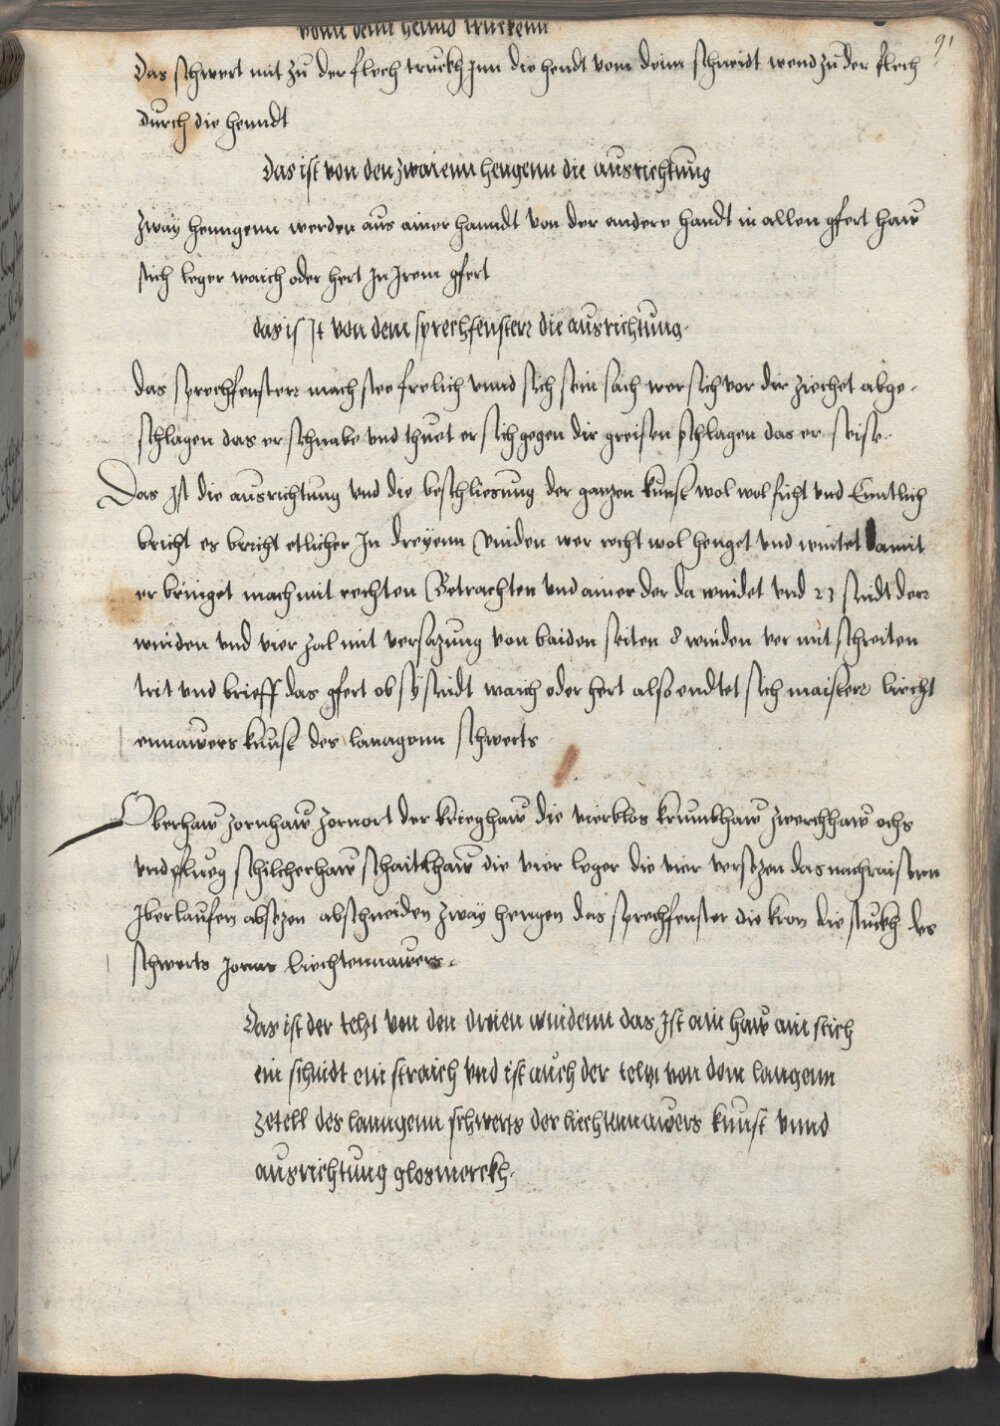 vonn dem hennd truckenn
91
das schwert mit zu der flech truckh Inn die hendt vom deim schneidt wend zu der flech
durch die henndt
das ist von den zwaienn hengenn die ausrichtung
zwaÿ henngenn werden aus ainer hanndt von der andere handt in allen gfert haw
stich leger waich oder hert In Irem gfert
das is It von dem sprechfensterr die ausrichtung
das sprechfensterr mach stee frelich vnnd sich sein sach wer sich vor dir ziechet abge-
schlagen das er schnabe vnd thuet er sich gegen dir greifen schlagen das er
Das Ist die ausrichtung vnd die beschliesung der ganzen kunst wol wol ficht vnd Enntlich
bricht es bricht etlicher In dreyenn winden wer recht wol henget vnd wintet damit
er bringet mach mit rechten Betrachten vnd ainer der da windet vnd 23 sindt derr
winden vnd vier zal mit versazung von baiden seiten 8 winden ver mit schreiten
trit vnd brieff das gfert ob sÿ sindt waich oder hert also endtet sich maisterr liecht
ennawers kunst des lanngenn schwerts
Oberhaw zornhaw zornort der krieghaw die vierblos krumbhaw zwerchhaw ochs
vnd pflueg schilcherhaw schaitlhaw die vier leger die vier versezen das nachraisenn
Iberlaufen absezen abschneiden zwaÿ hengen das sprechfenster die kron die stuckh des
schwerts Liechtennawers
Das ist der text von den dreien windenn das Ist ain haw ain stich
ein schnidt ein straich vnd ist auch der text von dem langenn
zetell des lanngenn schwerts der liechtennawers kunst vnnd
ausrichtung glos merckh